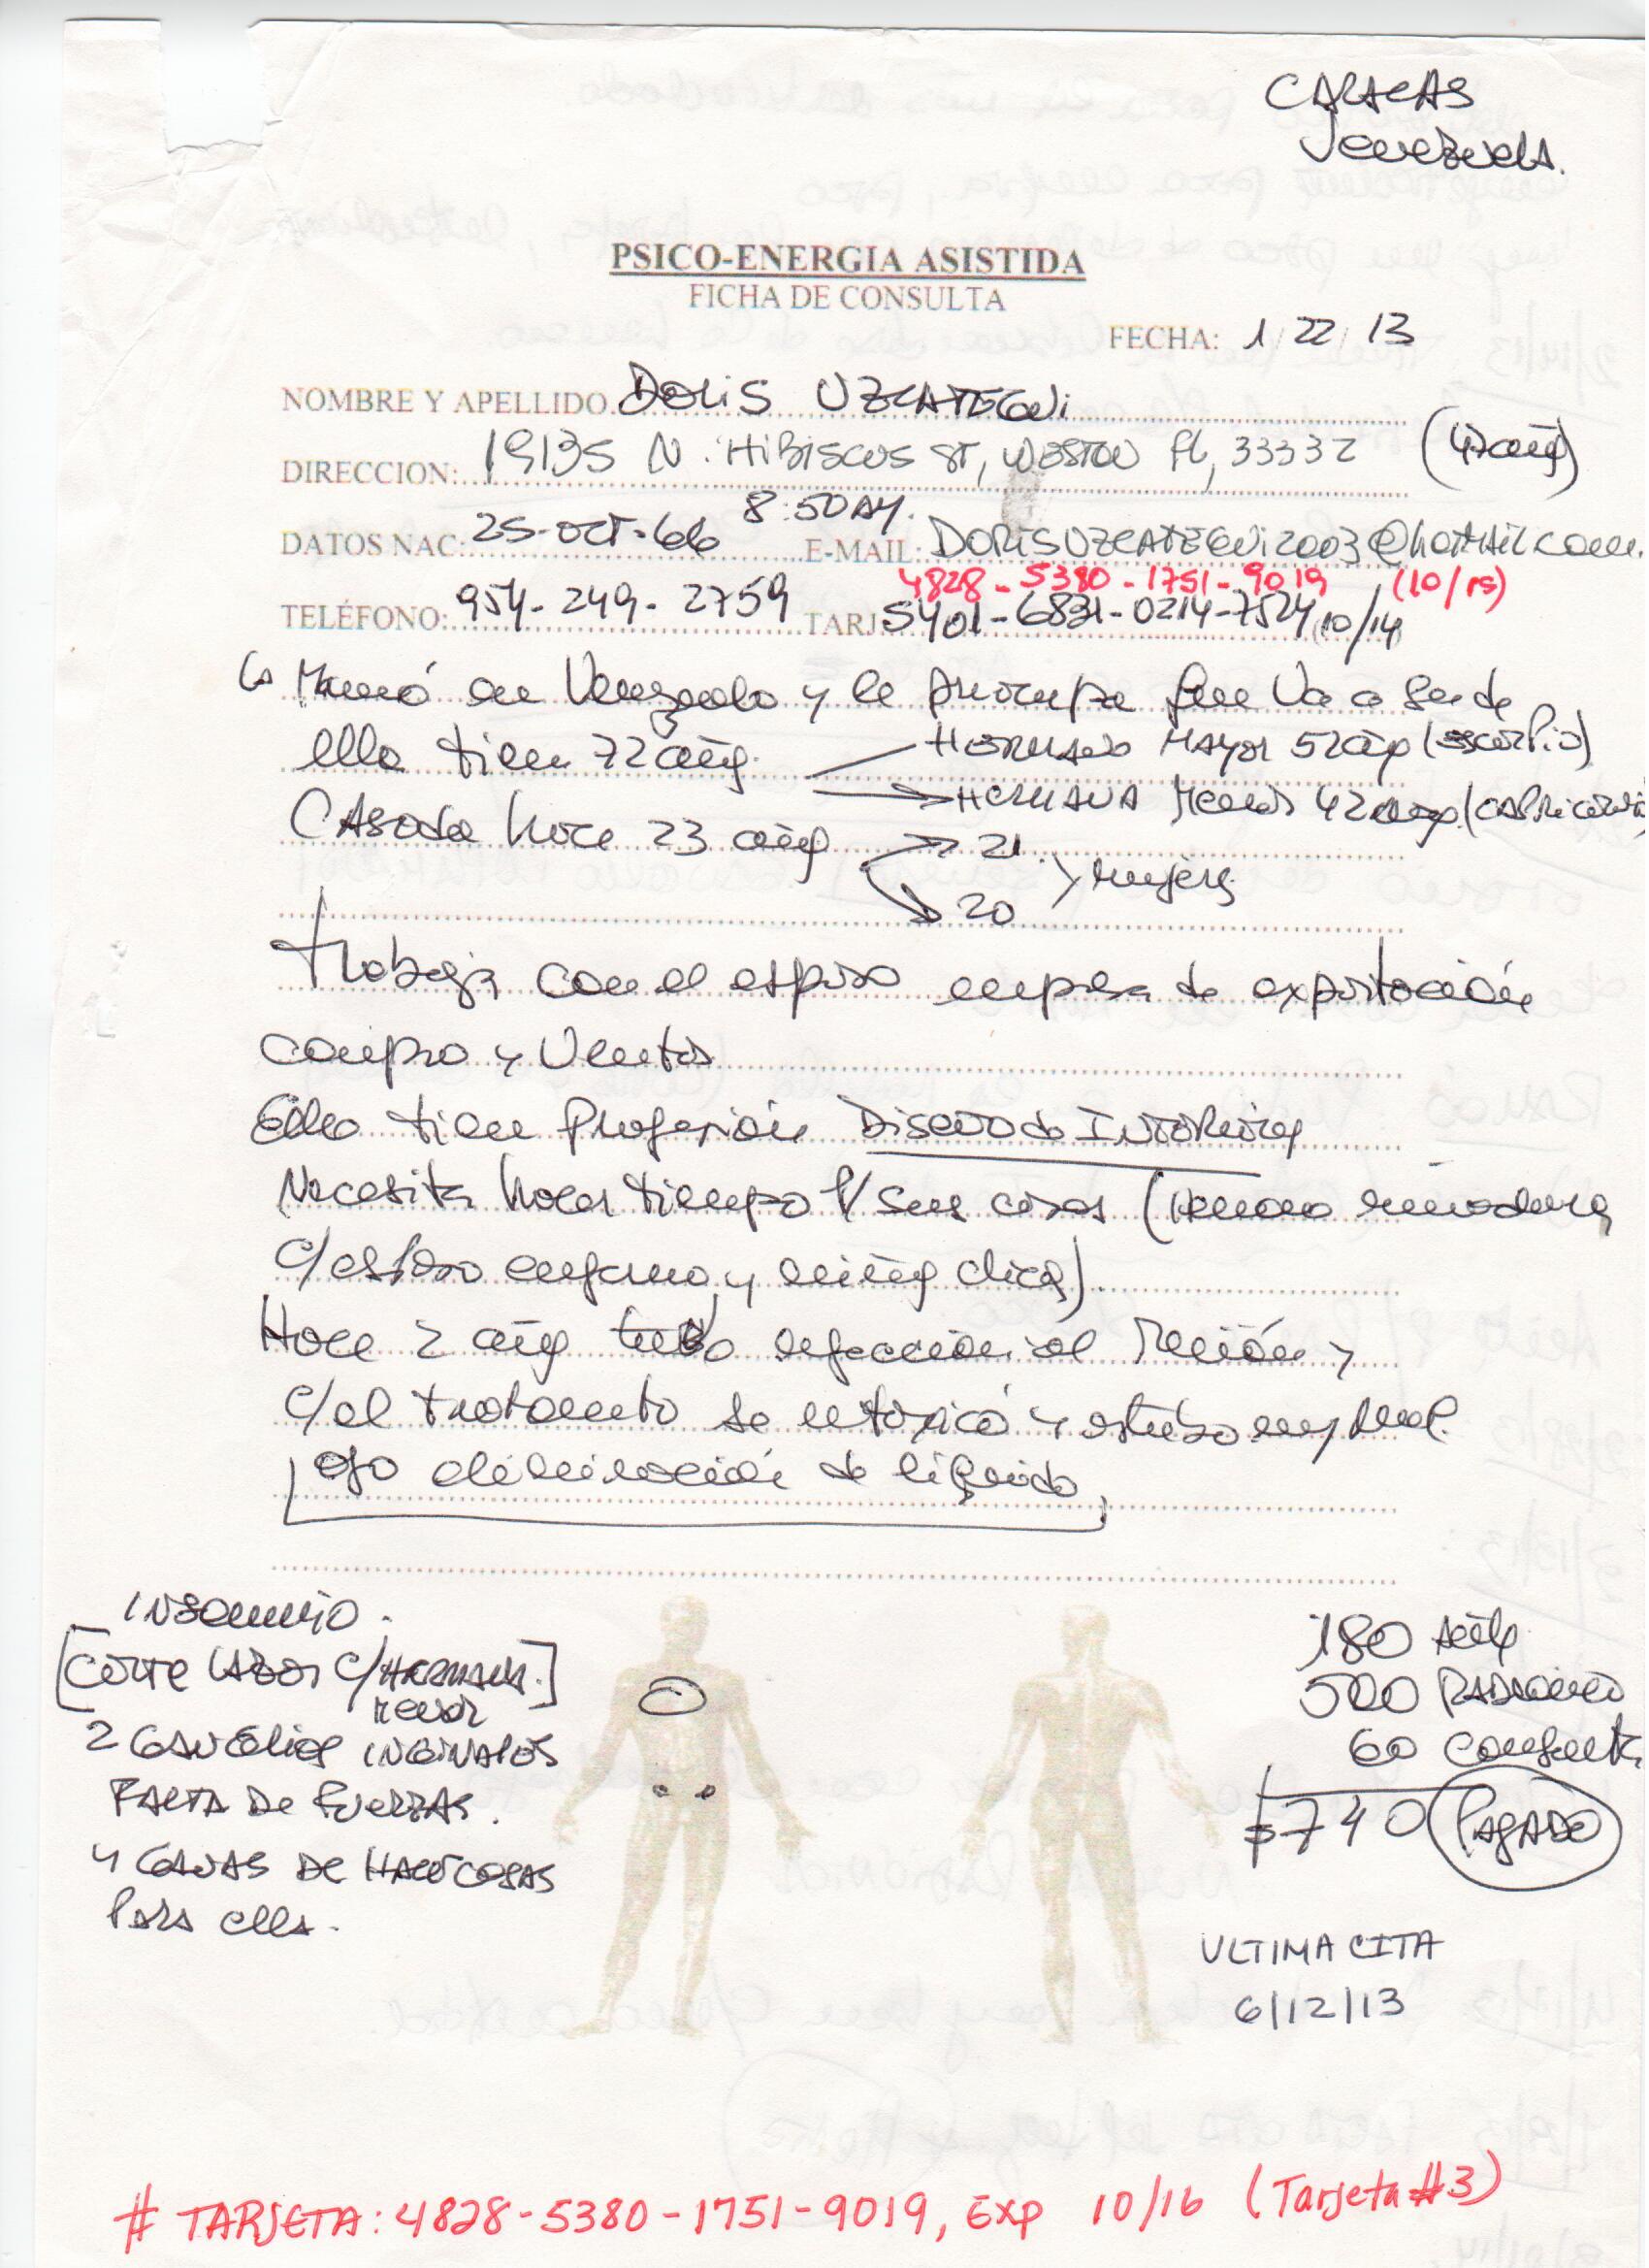 CARACAS
Venezuela.
PSICO-ENERGIA ASISTIDA
FICHA DE CONSULTA
FECHA: 1/22/13
NOMBRE Y APELLIDO Doris UZCATEGui
DIRECCION: 19135 N. HiBiscus ST, WESTON FL, 33332 (47 años)
8:50 AM.
DATOS NAC: 25-OCT-66 E-MAIL: DORISUZCATEGUi2003@hotmail.com
4828-5380-1751-9019 (10/15)
TELÉFONO: 954-249-2759 TARJ: 5401-6831-0214-7524 (10/14)
Mamá en Venezuela y le preocupa que va a ser de
ella tiene 72 años. HERMANO MAYOR 52 años (escorpio)
HERMANA Menor 42 años (CAPRICORNIO)
CASADA hace 23 años 21
20 mujeres
trabaja con el esposo empresa de exportación
compra y ventas
Ella tiene profesión Diseño de Interiores
Necesita hacer tiempo p/ sus cosas (
c/ esposo enfermo y niñas chicas).
Hace 2 años tubo infección al riñón y
c/ el tratamiento se intoxicó y estubo muy mal.
ojo eliminación de líquido
INSOMNIO.
[CORTE LAZOS C/HERMANA]
menor
2 GANGLIOS INGINALES
FALTA DE FUERZAS.
y GANAS DE HACER COSAS
PARA ella.
180
500 RADIONICO
60 consulta
$740 PAGADO
ULTIMA CITA
6/12/13
# TARJETA: 4828-5380-1751-9019, Exp 10/16 (Tarjeta #3)